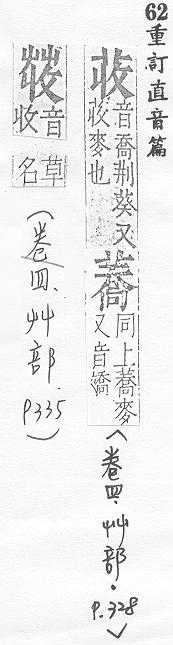 62重訂直音篇
荍音喬荆葵又荍麥也蕎同上蕎麥又音嬌
<卷四.艸部.P.328>
音收草名
(卷四、艸部.P335)